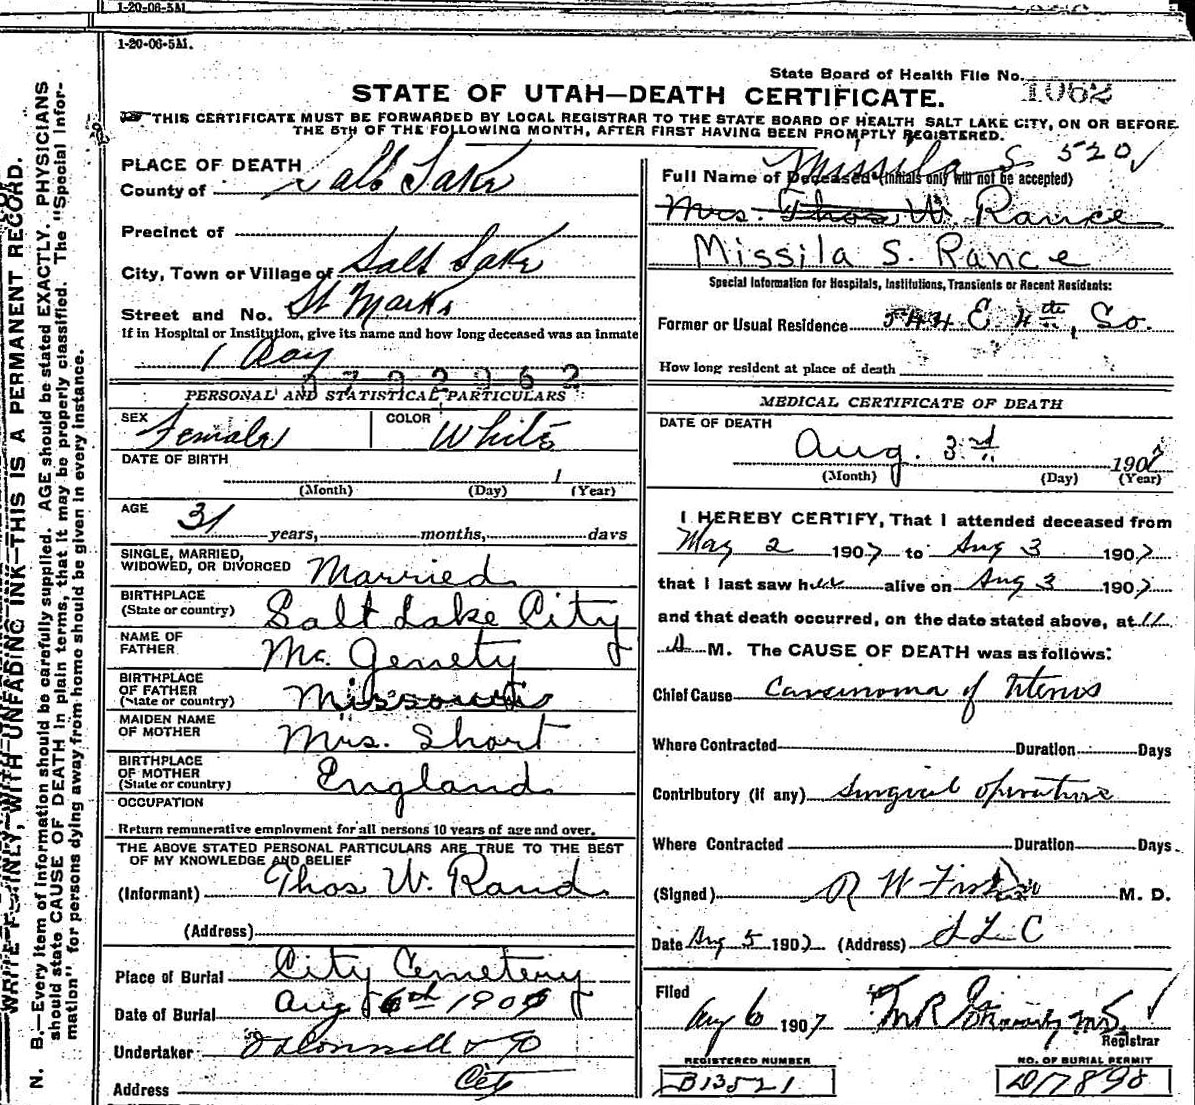 1-20-06-5M.
1-20-06-5M.
State Board of Health File No. 1062
STATE OF UTAH—DEATH CERTIFICATE.
THIS CERTIFICATE MUST BE FORWARDED BY LOCAL REGISTRAR TO THE STATE BOARD OF HEALTH SALT LAKE CITY, ON OR BEFORE
THE 5TH OF THE FOLLOWING MONTH, AFTER FIRST HAVING BEEN PROMPTLY REGISTERED.
WRITE PLAINLY, WITH UNFADING INK—THIS IS A PERMANENT RECORD.
N. B.—Every item of information should be carefully supplied. AGE should be stated EXACTLY. PHYSICIANS
should state CAUSE OF DEATH in plain terms, that it may be properly classified. The "Special Infor-
mation" for persons dying away from home should be given in every instance.
PLACE OF DEATH
County of Salt Lake
Precinct of
City, Town or Village of Salt Lake
Street and No. St Marks
If in Hospital or Institution, give its name and how long deceased was an inmate
1 Day
0792962
PERSONAL AND STATISTICAL PARTICULARS
SEX Female COLOR White
DATE OF BIRTH
1
(Month) (Day) (Year)
AGE
31 years, months, days
SINGLE, MARRIED,
WIDOWED, OR DIVORCED Married
BIRTHPLACE
(State or country) Salt Lake City
NAME OF
FATHER Mc Gerrety
BIRTHPLACE
OF FATHER
(State or country) Missouri
MAIDEN NAME
OF MOTHER Mrs. Short
BIRTHPLACE
OF MOTHER
(State or country) England
OCCUPATION
Return remunerative employment for all persons 10 years of age and over.
THE ABOVE STATED PERSONAL PARTICULARS ARE TRUE TO THE BEST
OF MY KNOWLEDGE AND BELIEF
(Informant) Thos W. Rand
(Address)
Place of Burial City Cemetery
Date of Burial Aug 6th 1907
Undertaker O'Donnell & Co
Address City
Missila S 520
Full Name of Deceased (initials only will not be accepted)
Mrs. Thos. W. Rance
Missila S. Rance
Special Information for Hospitals, Institutions, Transients or Recent Residents:
Former or Usual Residence 544 E 4th, So.
How long resident at place of death
MEDICAL CERTIFICATE OF DEATH
DATE OF DEATH
Aug. 3rd 1907
(Month) (Day) (Year)
I HEREBY CERTIFY, That I attended deceased from
May 2 1907 to Aug 3 1907
that I last saw her alive on Aug 3 1907
and that death occurred, on the date stated above, at 11
A M. The CAUSE OF DEATH was as follows:
Chief Cause Carcinoma of Uterus
Where Contracted Duration Days
Contributory (if any) Surgical operation
Where Contracted Duration Days
(Signed) R W Fisher M. D.
Date Aug 5 1907 (Address) S L C
Filed
Aug 6 1907 M R
Registrar
REGISTERED NUMBER NO. OF BURIAL PERMIT
B13521 D17898